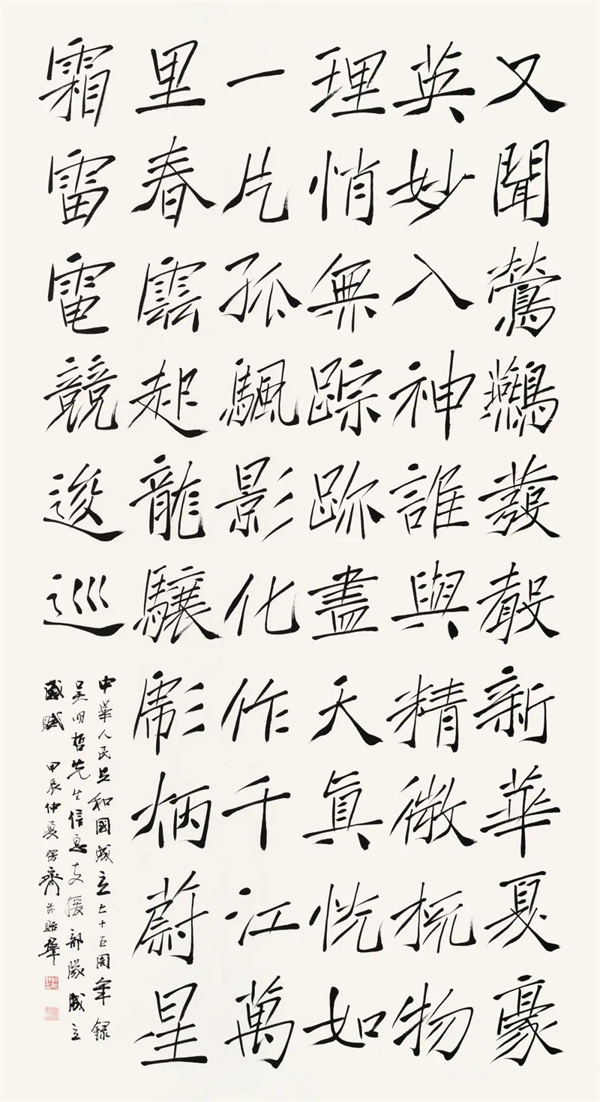 又聞鶯發聲新華夏豪
英妙入神誰與精微物
理悄無踪跡盡天真恍如
一片孤颿影化作千江萬
里春雲起龍驤彪炳蔚星
霜雷電競逡巡
中華人民共和國成立七十五周年錄
吴明哲先生信息支援部隊成立
盛賦 甲辰仲夏